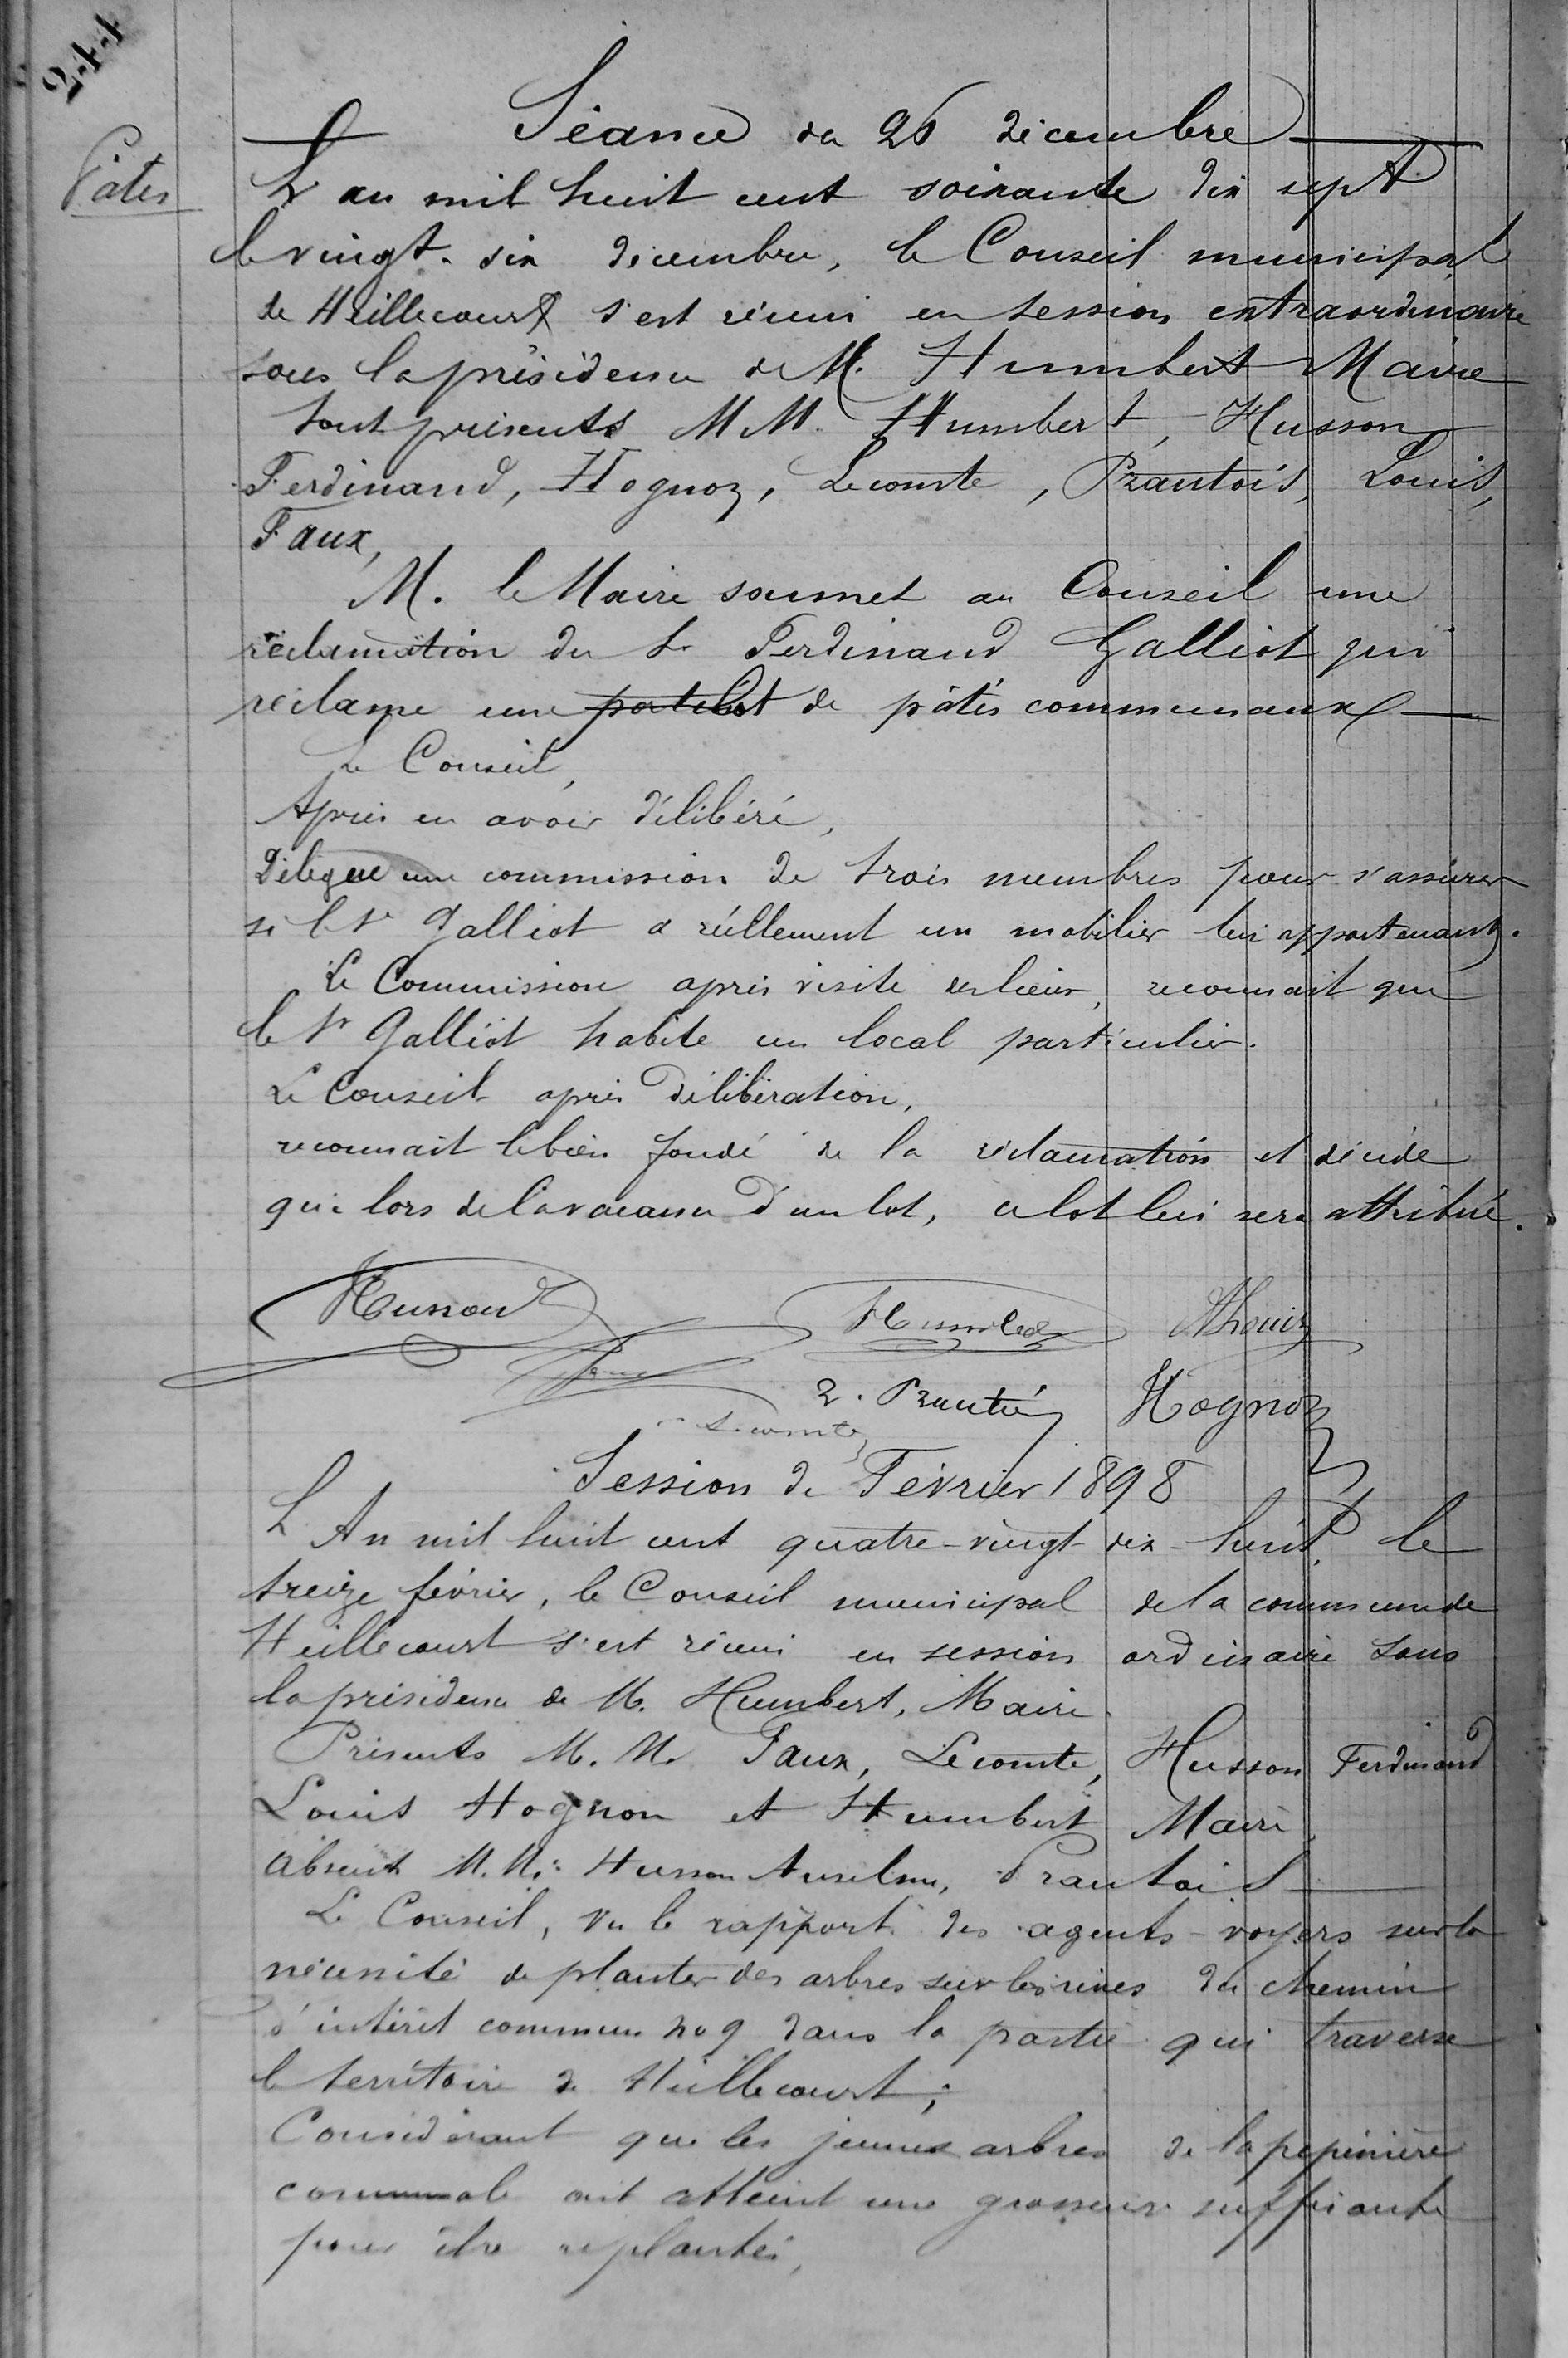 244
Séance du 26 décembre
Pâtes
L'an mil huit cent soixante dix sept
le vingt-six décembre, le Conseil municipal
de Heillecourt s'est réuni en session extraordinaire
sous la présidence de M. Humbert Maire
Sont présents MM. Humbert, Husson
Ferdinand, Hognoz, Lecomte, Prautois, Louis,
Faux,
M. le Maire soumet au Conseil une
réclamation du Sr Ferdinand Galliot qui
réclame une de pâtis communaux
Le Conseil,
Après en avoir délibéré,
Délegue une commission de trois membres pour s'assurer
si le Sr Galliot a réellement un mobilier lui appartenant.
La Commission après visite des lieux, reconnait que
le Sr Galliot habite un local particulier.
Le Conseil après délibération,
reconnait le bien fondé de la réclamation et décide
que lors de la vacance d'un lot, ce lot lui sera attribué.
Husson
Humbert
Louis
Faux
Prautois
Hognoz
Lecomte
Session de Février 1898
L'An mil huit cent quatre-vingt dix-huit, le
treize février, le Conseil municipal de la commune de
Heillecourt s'est réuni en session ordinaire sous
la présidence de M. Humbert, Maire.
Présents M. M. Faux, Lecomte, Husson Ferdinand
Louis Hognon et Humbert Maire.
Absents M. M. Husson Anselme, Prautois
Le Conseil, vu le rapport des agents-voyers sur la
nécessité de planter des arbres sur les rives du chemin
d'intérêt commun no 9 dans la partie qui traverse
le territoire de Heillecourt;
Considérant que les jeunes arbres de la pépinière
communale ont atteint une grosseur suffisante
pour être replantés,